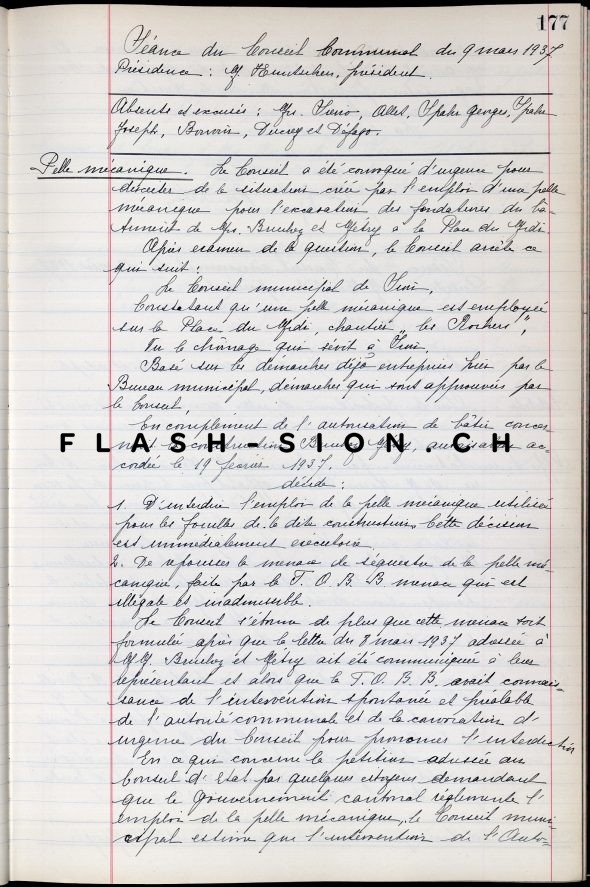 177
Séance du Conseil Communal du 9 mars 1937
Présidence : M Kuntschen, président.
Absents et excusés : Mrs. Sierro, Allet, Spahr Georges, Spahr
Joseph, Bonvin, Ducrey et Défago.
Pelle mécanique. Le Conseil a été convoqué d'urgence pour
discuter de la situation créée par l'emploi d'une pelle
mécanique pour l'excavation des fondations du bâ-
timent de Mrs. Bruchez et Métry à la Place du Midi.
Après examen de la question, le Conseil arrête ce
qui suit :
Le Conseil municipal de Sion,
Constatant qu'une pelle mécanique est employée
sur la Place du Midi, chantier "les Rochers",
Vu le chômage qui sévit à Sion,
Basé sur les démarches déjà entreprises hier par le
Bureau municipal, démarches qui sont approuvées par
le Conseil,
En complément de l'autorisation de bâtir concer-
nant la construction Bruchez Métry, autorisation ac-
FLASH-SION.CH
cordée le 19 février 1937.
décide :
1. D'interdire l'emploi de la pelle mécanique utilisée
pour les fouilles de la dite construction. Cette décision
est immédiatement exécutoire.
2. De repousser la menace de séquestre de la pelle mé-
canique, faite par la F. O. B. B menace qui est
illégale et inadmissible.
Le Conseil s'étonne de plus que cette menace soit
formulée après que la lettre du 8 mars 1937 adressée à
MM. Bruchez et Métry ait été communiquée à leur
représentant et alors que la F. O. B. B. avait connais-
sance de l'intervention spontanée et préalable
de l'autorité communale et de la convocation d'
urgence du Conseil pour prononcer l'interdiction
En ce qui concerne la pétition adressée au
Conseil d'Etat par quelques citoyens demandant
que le Gouvernement cantonal réglemente l'
emploi de la pelle mécanique, le Conseil muni-
cipal estime que l'intervention de l'Auto-